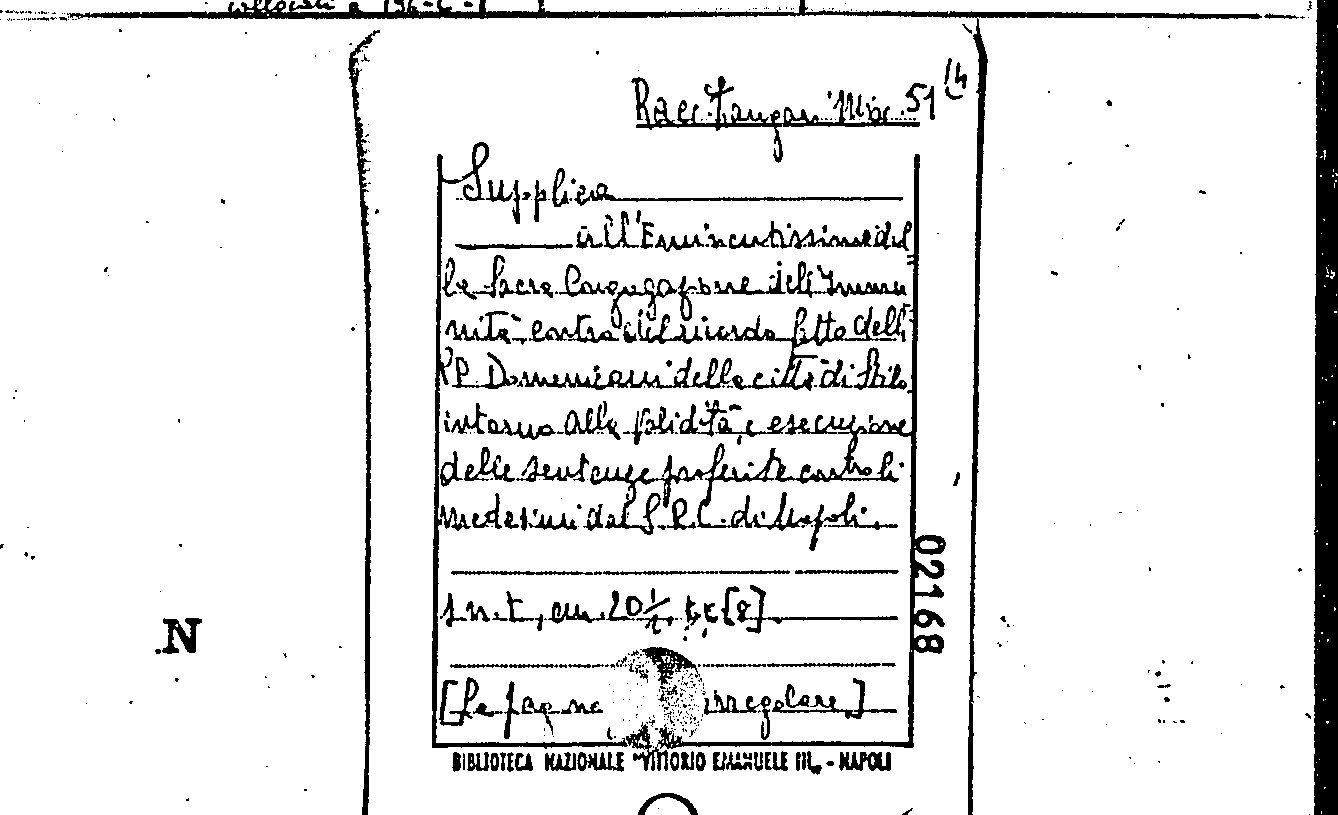 collocati a 196-C-1
Racc. Zangari Misc. 51
Supplica
all'Eminentissime del
la Sacra Congregazione dell'Immu
nità, contro del ricordo fatto delli
PP. Domenicani della città di Stilo
intorno alla validità, e esecuzione
delle sentenze proferite contro li
medesimi dal S.R.C. di Napoli.
s.n.t., cm. 20 ½, [8].
[La pagina irregolare.]
02168
N
BIBLIOTECA NAZIONALE "VITTORIO EMANUELE III" - NAPOLI